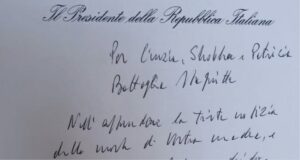 Il Presidente della Repubblica Italiana
Per Cinzia, Shobha e Patrizia
Battaglia Stagnitta
Nell'apprendere la triste notizia
della morte di Vostra madre, e